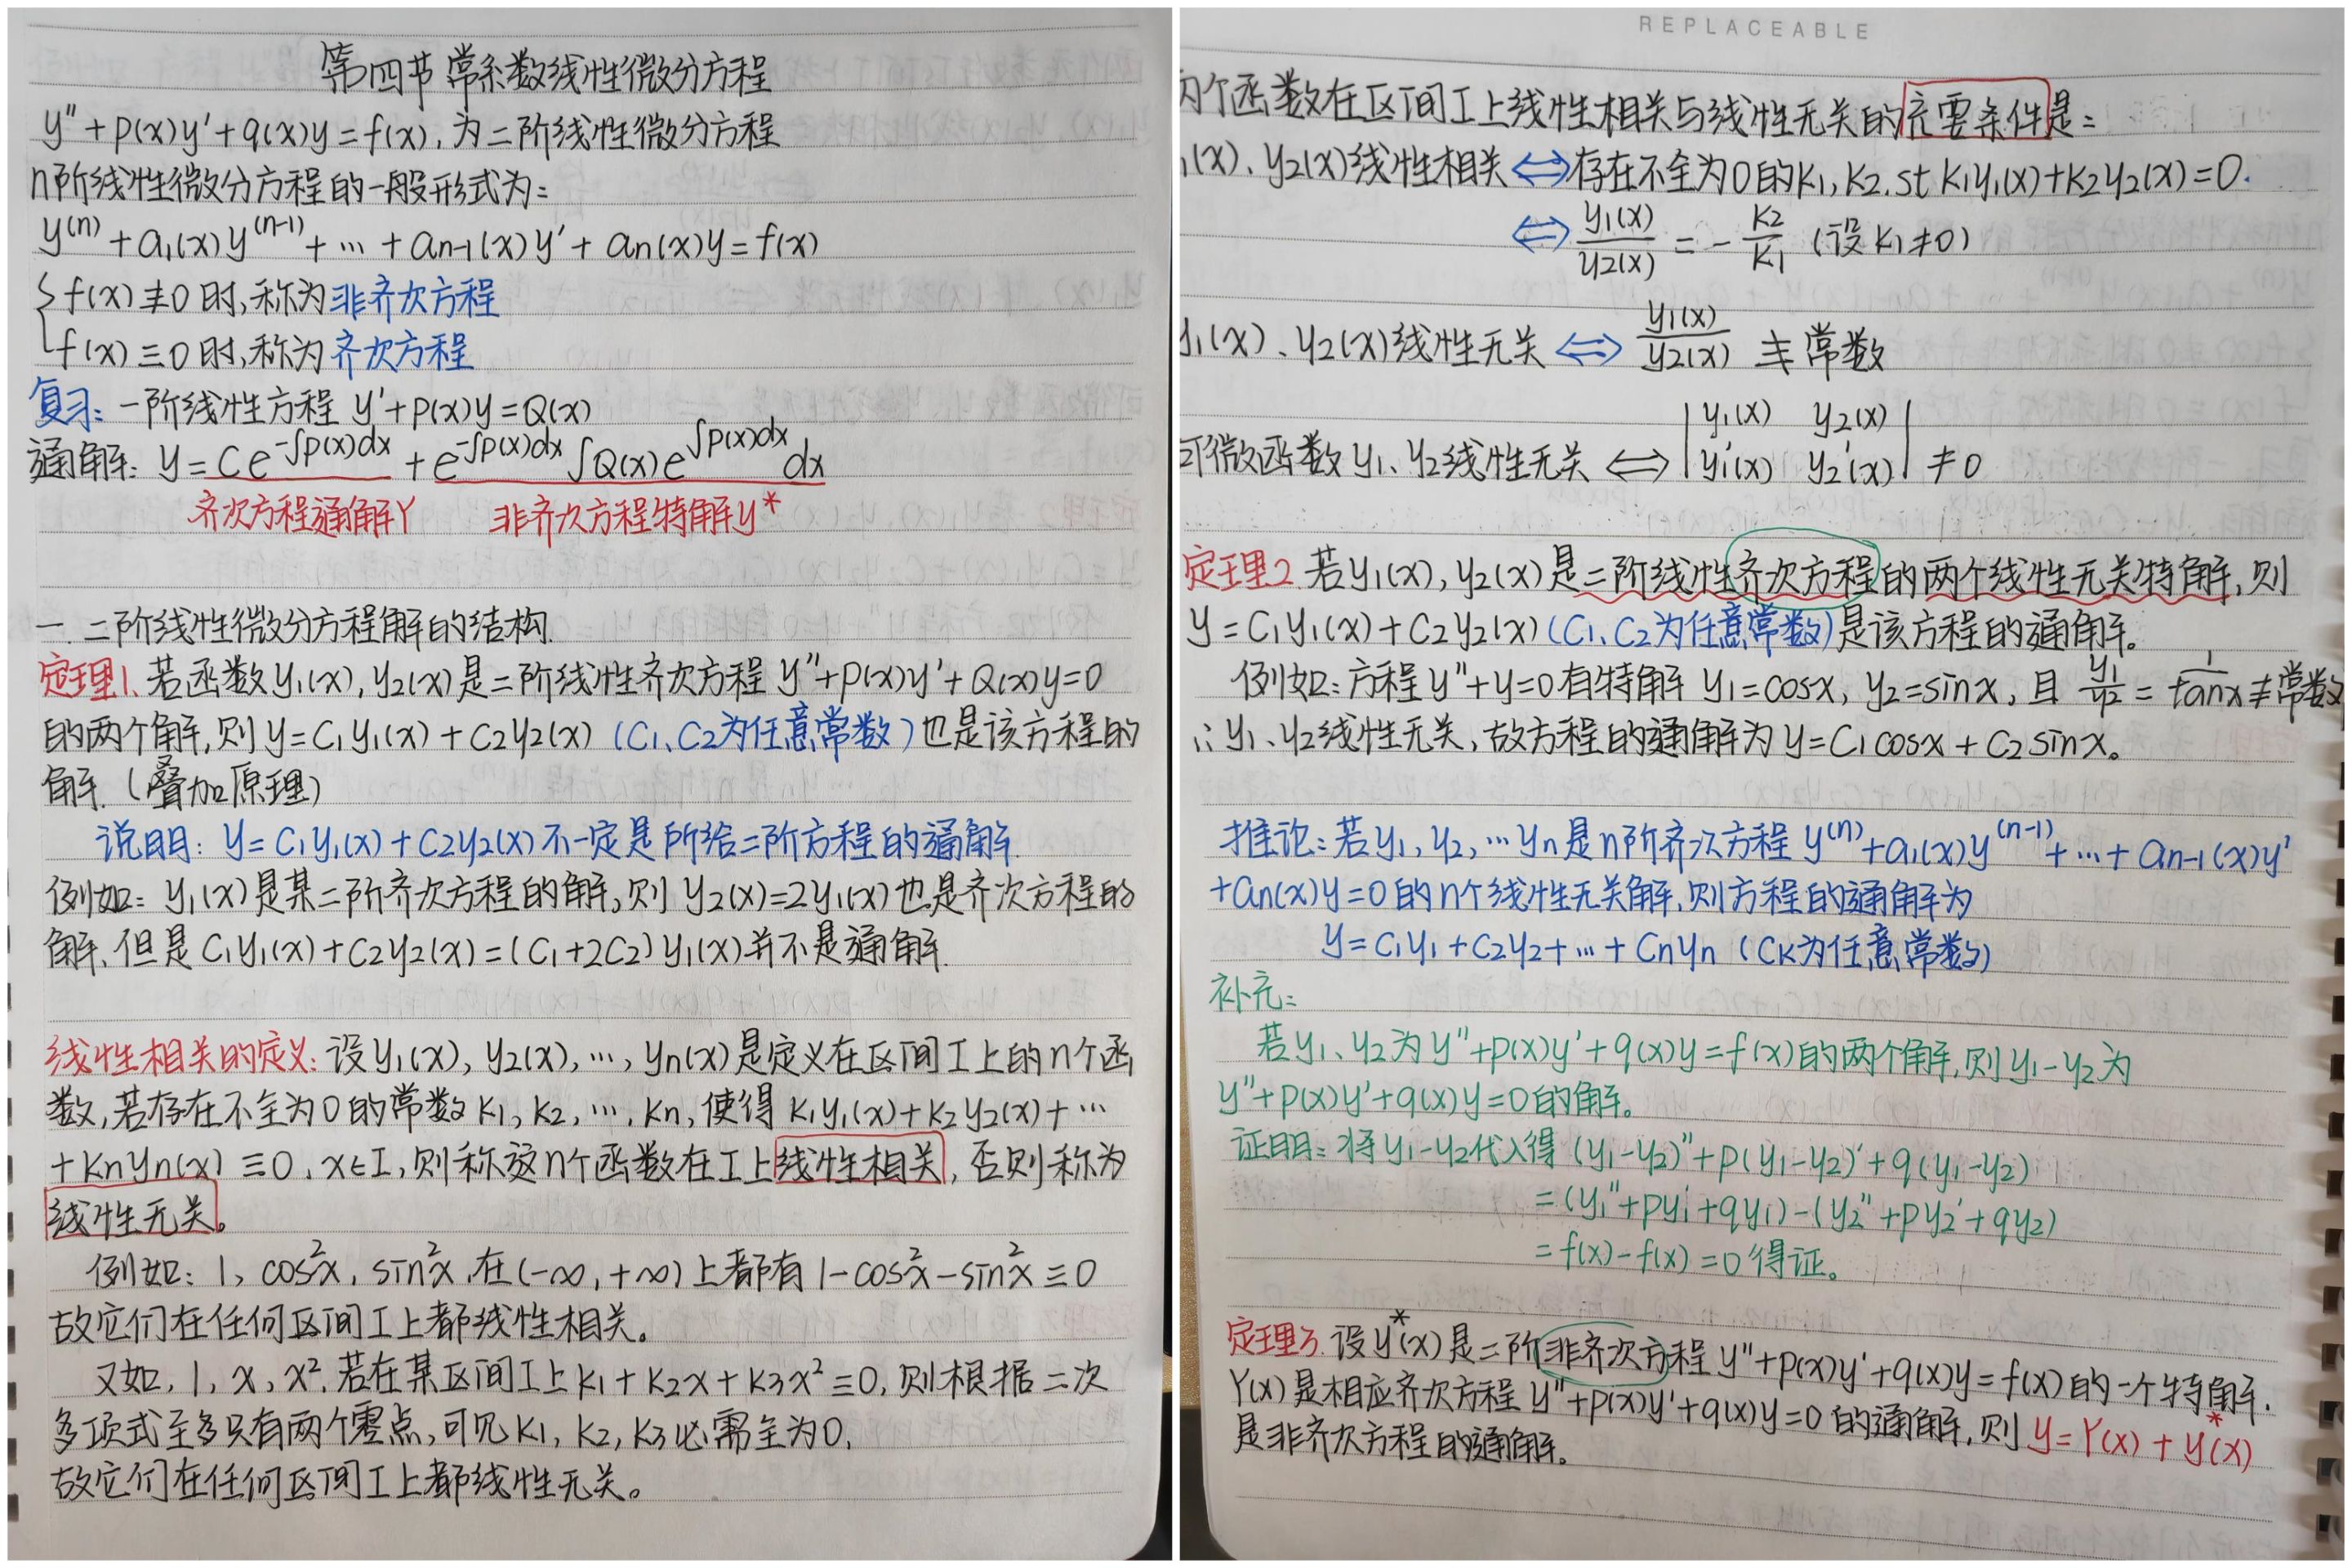 第四节 常系数线性微分方程
y''+p(x)y'+q(x)y=f(x), 为二阶线性微分方程
n阶线性微分方程的一般形式为:
y^(n)+a₁(x)y^(n-1)+…+aₙ₋₁(x)y'+aₙ(x)y=f(x)
{ f(x)≢0时,称为非齐次方程
f(x)≡0时,称为齐次方程
复习: 一阶线性方程 y'+p(x)y=Q(x)
通解: y=Ce^(-∫p(x)dx)+e^(-∫p(x)dx)∫Q(x)e^(∫p(x)dx)dx
齐次方程通解Y 非齐次方程特解y*
一. 二阶线性微分方程解的结构.
定理1. 若函数y₁(x), y₂(x)是二阶线性齐次方程 y''+p(x)y'+Q(x)y=0
的两个解,则 y=C₁y₁(x)+C₂y₂(x) (C₁、C₂为任意常数)也是该方程的
解. (叠加原理)
说明: y=C₁y₁(x)+C₂y₂(x)不一定是所给二阶方程的通解.
例如: y₁(x)是某二阶齐次方程的解,则 y₂(x)=2y₁(x)也是齐次方程的
解.但是C₁y₁(x)+C₂y₂(x)=(C₁+2C₂)y₁(x)并不是通解.
线性相关的定义: 设y₁(x), y₂(x), …, yₙ(x)是定义在区间I上的n个函
数,若存在不全为0的常数k₁, k₂, …, kₙ, 使得 k₁y₁(x)+k₂y₂(x)+…
+kₙyₙ(x)≡0, x∈I, 则称这n个函数在I上线性相关, 否则称为
线性无关。
例如: 1, cos²x, sin²x, 在(-∞, +∞)上都有 1-cos²x-sin²x≡0
故它们在任何区间I上都线性相关。
又如, 1, x, x², 若在某区间I上k₁+k₂x+k₃x²≡0, 则根据二次
多项式至多只有两个零点,可见k₁, k₂, k₃必需全为0,
故它们在任何区间I上都线性无关。
REPLACEABLE
两个函数在区间I上线性相关与线性无关的充要条件是:
₁(x)、y₂(x)线性相关⇔存在不全为0的k₁, k₂. st k₁y₁(x)+k₂y₂(x)=0.
⇔ y₁(x)/y₂(x) = -k₂/k₁ (设k₁≠0)
y₁(x)、y₂(x)线性无关⇔ y₁(x)/y₂(x) ≢ 常数
可微函数y₁、y₂线性无关⇔ |y₁(x) y₂(x)|
|y₁'(x) y₂'(x)| ≠0
定理2. 若y₁(x), y₂(x)是二阶线性齐次方程的两个线性无关特解, 则
y=C₁y₁(x)+C₂y₂(x)(C₁、C₂为任意常数)是该方程的通解。
例如: 方程y''+y=0有特解 y₁=cosx, y₂=sinx, 且 y₁/y₂ = 1/tanx ≢常数
∴ y₁、y₂线性无关, 故方程的通解为 y=C₁cosx+C₂sinx。
推论: 若y₁, y₂, …yₙ是n阶齐次方程 y^(n)+a₁(x)y^(n-1)+…+aₙ₋₁(x)y'
+aₙ(x)y=0的n个线性无关解, 则方程的通解为
y=C₁y₁+C₂y₂+…+Cₙyₙ (Cₖ为任意常数)
补充:
若y₁、y₂为y''+p(x)y'+q(x)y=f(x)的两个解, 则y₁-y₂为
y''+p(x)y'+q(x)y=0的解。
证明: 将y₁-y₂代入得 (y₁-y₂)''+p(y₁-y₂)'+q(y₁-y₂)
=(y₁''+py₁'+qy₁)-(y₂''+py₂'+qy₂)
=f(x)-f(x)=0 得证。
定理3. 设y*(x)是二阶非齐次方程 y''+p(x)y'+q(x)y=f(x)的一个特解.
Y(x)是相应齐次方程 y''+p(x)y'+q(x)y=0 的通解, 则 y=Y(x)+y*(x)
是非齐次方程的通解。